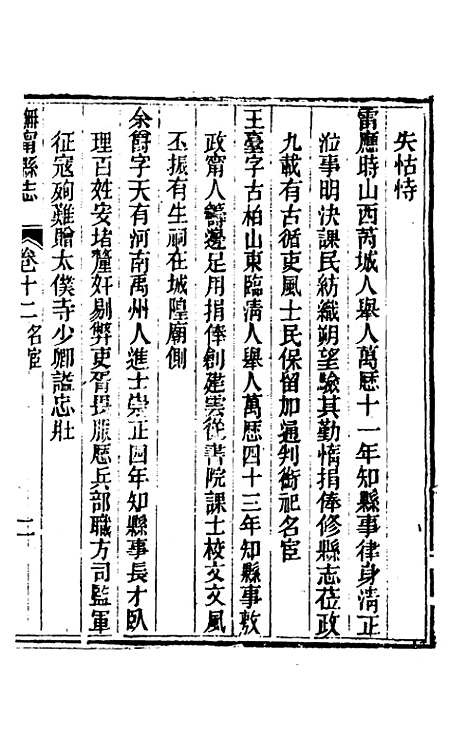 失怙恃
雷應時山西芮城人舉人萬歷十一年知縣事律身清正
涖事明決課民紡織朔望驗其勤惰捐俸修縣志莅政
九載有古循吏風士民保留加通判銜祀名宦
王臺字古柏山東臨清人舉人萬歷四十三年知縣事敷
政甯人籌邊足用捐俸創建雲從書院課士校文文風
丕振有生祠在城隍廟側
余爵字天有河南禹州人進士崇正四年知縣事長才臥
理百姓安堵釐奸剔弊吏胥畏服歷兵部職方司監軍
征寇殉難贈太僕寺少卿謚忠壯
撫甯縣志
卷十二名宦
二